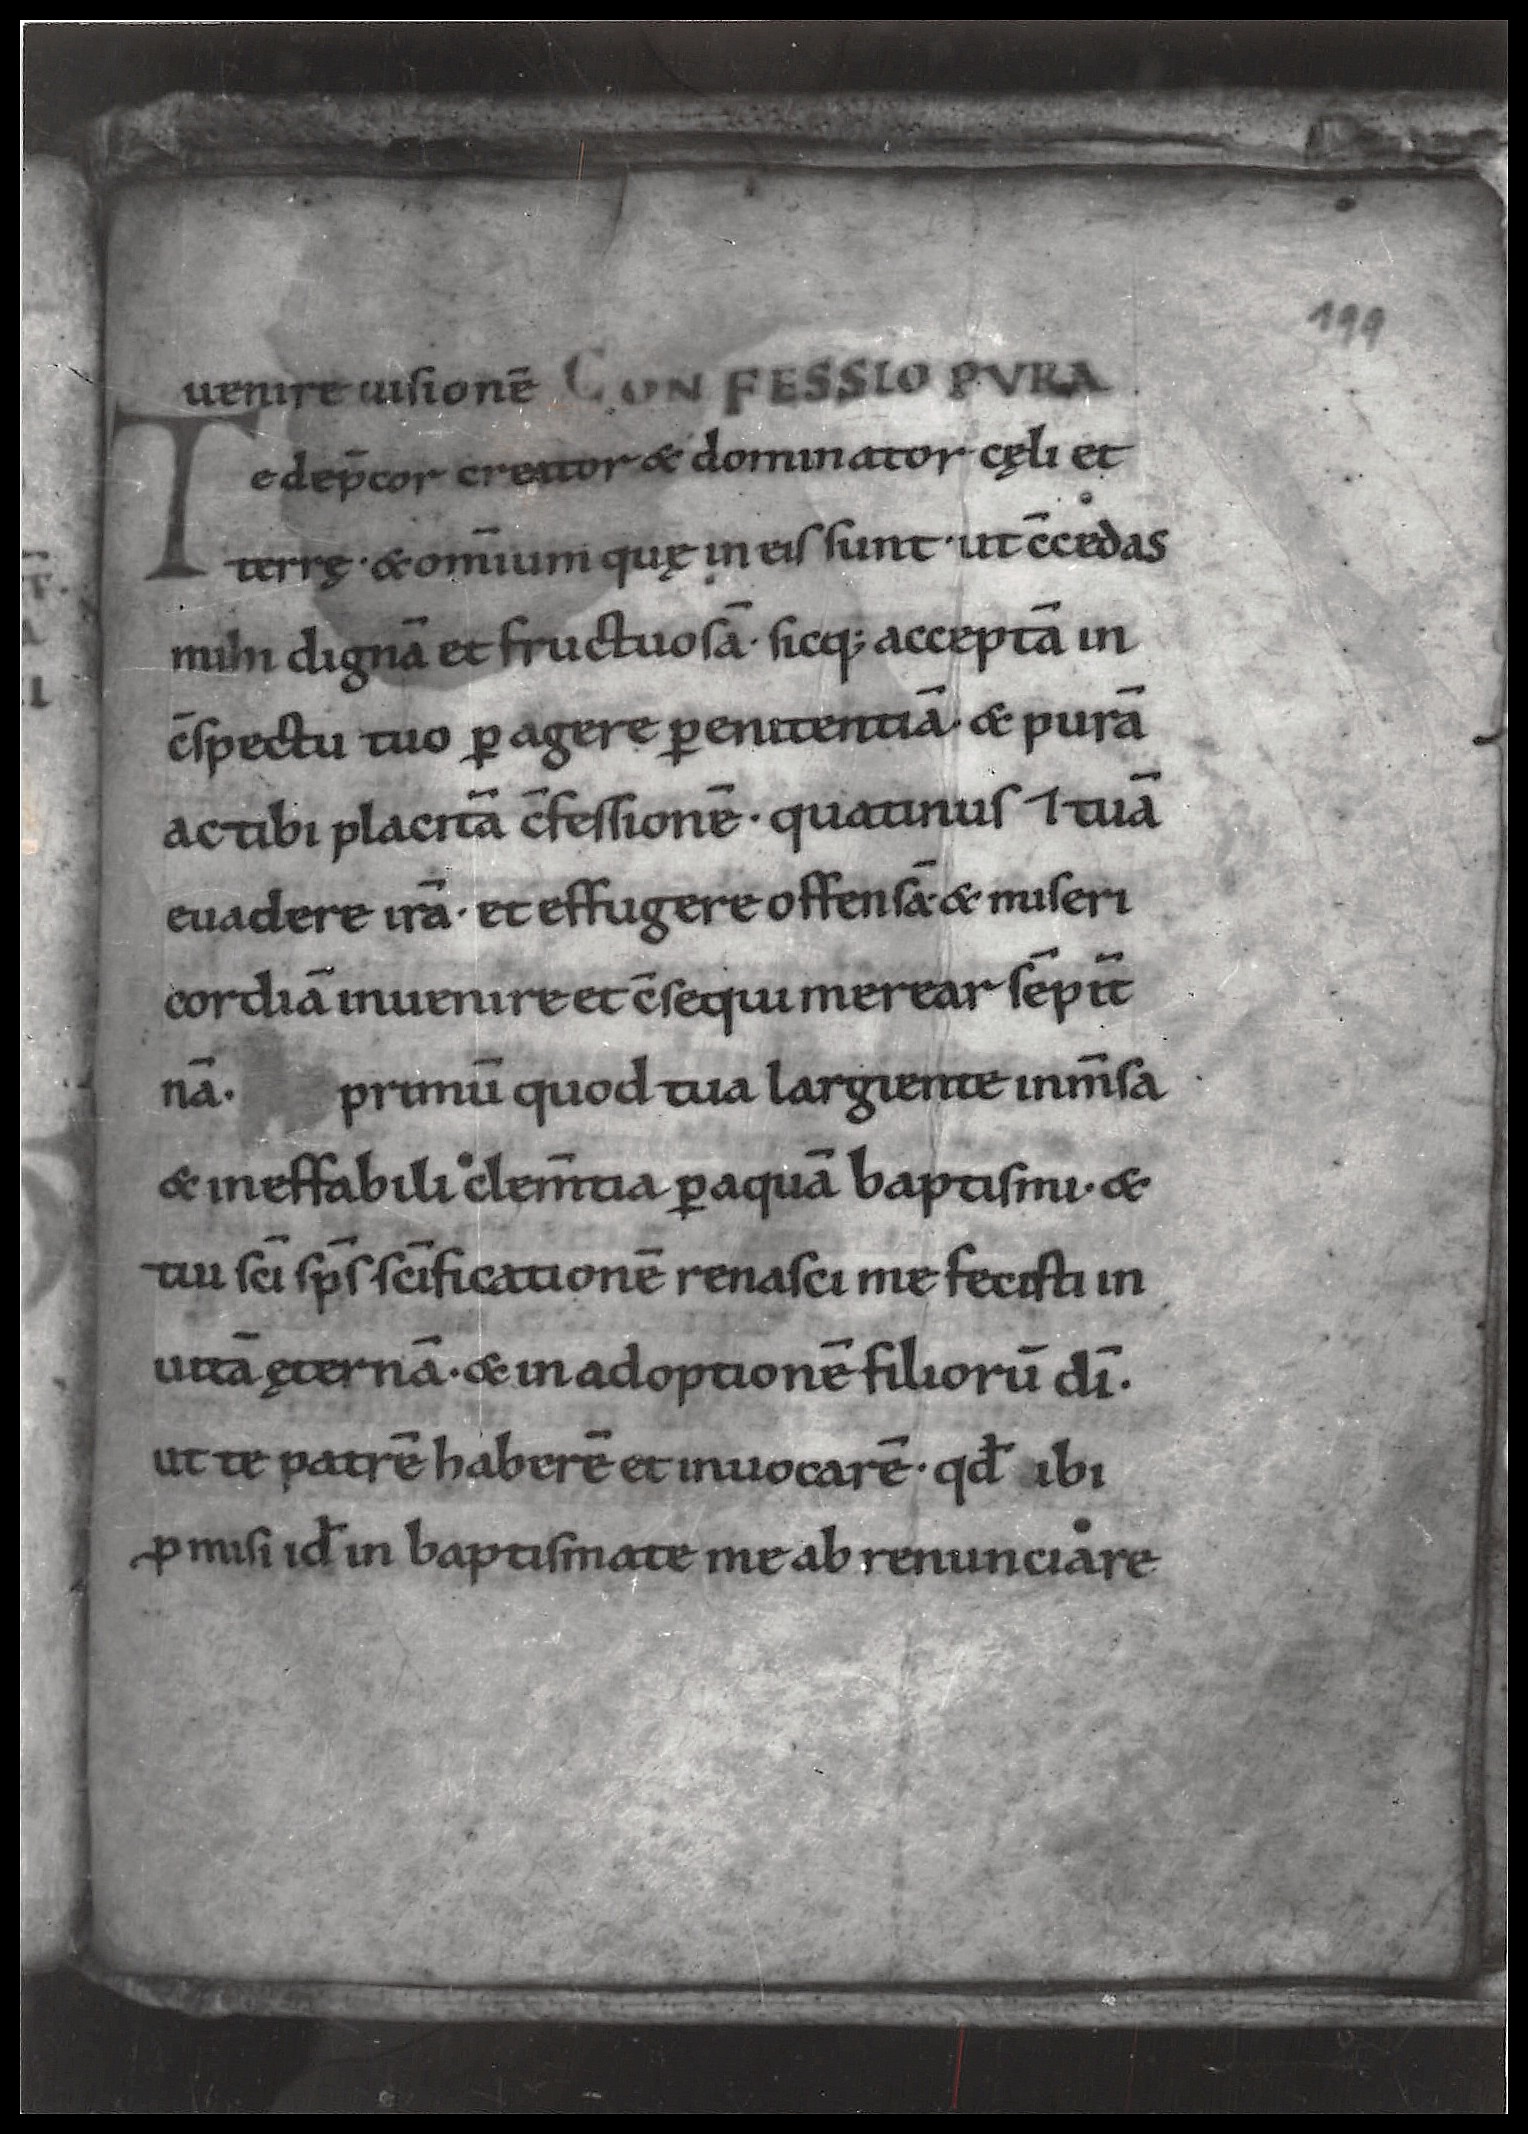 199
uenire uisionē CONFESSIO PVRA
Te dep̄cor creator & dominator cęli et
terrę · & om̄ium quę in eis sunt · ut c̄cedas
mihi dignā et fructuosā · sicq; acceptā in
c̄spectu tuo ꝑ agere penitentiā · & purā
ac tibi placitā c̄fessionē · quatinus ⁊ tuā
euadere irā · et effugere offensā · & miseri
cordiā inuenire et c̄sequi merear sēpit̄
nā · primū quod tua largiente inm̄sa
& ineffabili clem̄tia ꝑ aquā baptismi · &
tui sc̄i sp̄s sc̄ificationē renasci me fecisti in
uitā ęternā · & in adoptionē filiorū dī ·
ut te patrē haberē et inuocarē · qđ ibi
ꝓmisi iđ in baptismate me ab renunciare